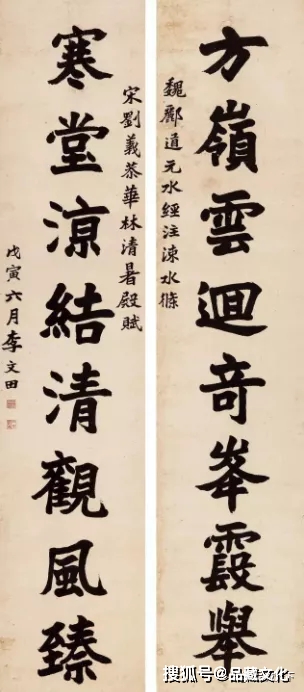 方嶺雲迴竒峯霞舉
魏酈道元水經注涑水條
宋劉義恭華林清暑殿賦
寒堂涼結清觀風臻
戊寅六月李文田
搜狐号@品藏文化